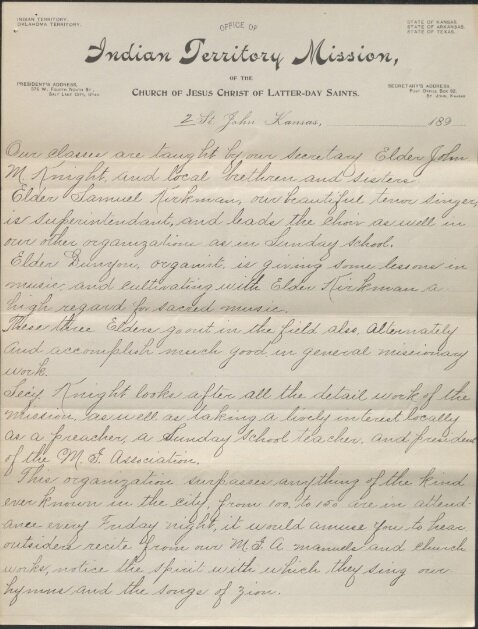 INDIAN TERRITORY.
OKLAHOMA TERRITORY.
STATE OF KANSAS.
STATE OF ARKANSAS.
STATE OF TEXAS.
OFFICE OF
Indian Territory Mission,
OF THE
CHURCH OF JESUS CHRIST OF LATTER-DAY SAINTS.
PRESIDENT'S ADDRESS,
575 W. FOURTH NORTH ST.,
SALT LAKE CITY, UTAH
SECRETARY'S ADDRESS,
POST OFFICE BOX 92,
ST. JOHN, KANSAS
2 St. John Kansas, 189
Our classes are taught by our secretary Elder John
M Knight, and local brethren and sisters
Elder Samuel Kirkman, our beautiful tenor singer,
is superintendant, and leads the choir as well in
our other organizations as in Sunday school.
Elder Bunyon, organist, is giving some lessons in
music, and cultivating with Elder Kirkman a
high regard for sacred music.
These three Elders go out in the field also, alternately
and accomplish much good in general missionary
work.
Secy Knight looks after all the detail work of the
mission, as well as taking a lively interest locally
as a preacher, a Sunday School teacher, and president
of the M. I. Association.
This organization surpasses anything of the kind
ever known in the city, from 100, to 150 are in attend-
ance every Friday night, it would amuse you to hear
outsiders recite from our M. I. A manuels and church
works, notice the spirit with which they sing our
hymns and the songs of zion.